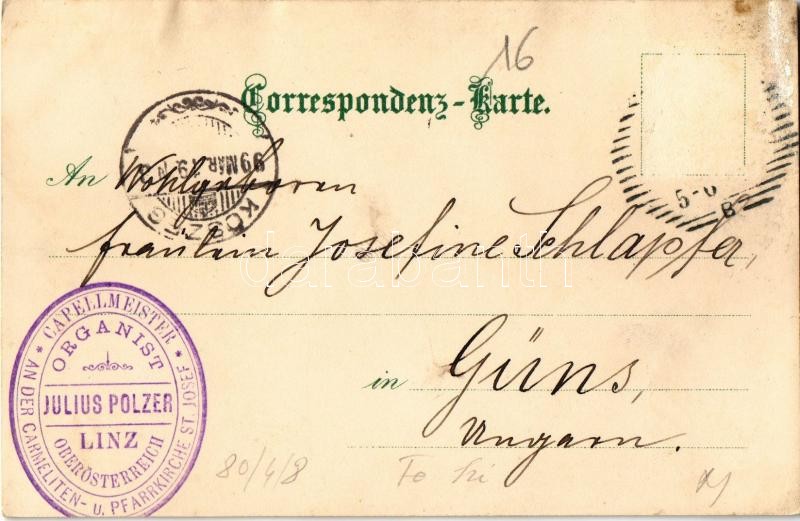 16
Correspondenz-Karte.
KŐSZEG
99 MAR. 19
5-6
B
An Wohlgeboren
Fräulein Josefine Schlapfer,
in Güns,
Ungarn.
* CAPELLMEISTER *
ORGANIST
JULIUS POLZER
LINZ
OBERÖSTERREICH
AN DER CARMELITEN- U. PFARRKIRCHE ST. JOSEF
80/4/8
darabanth